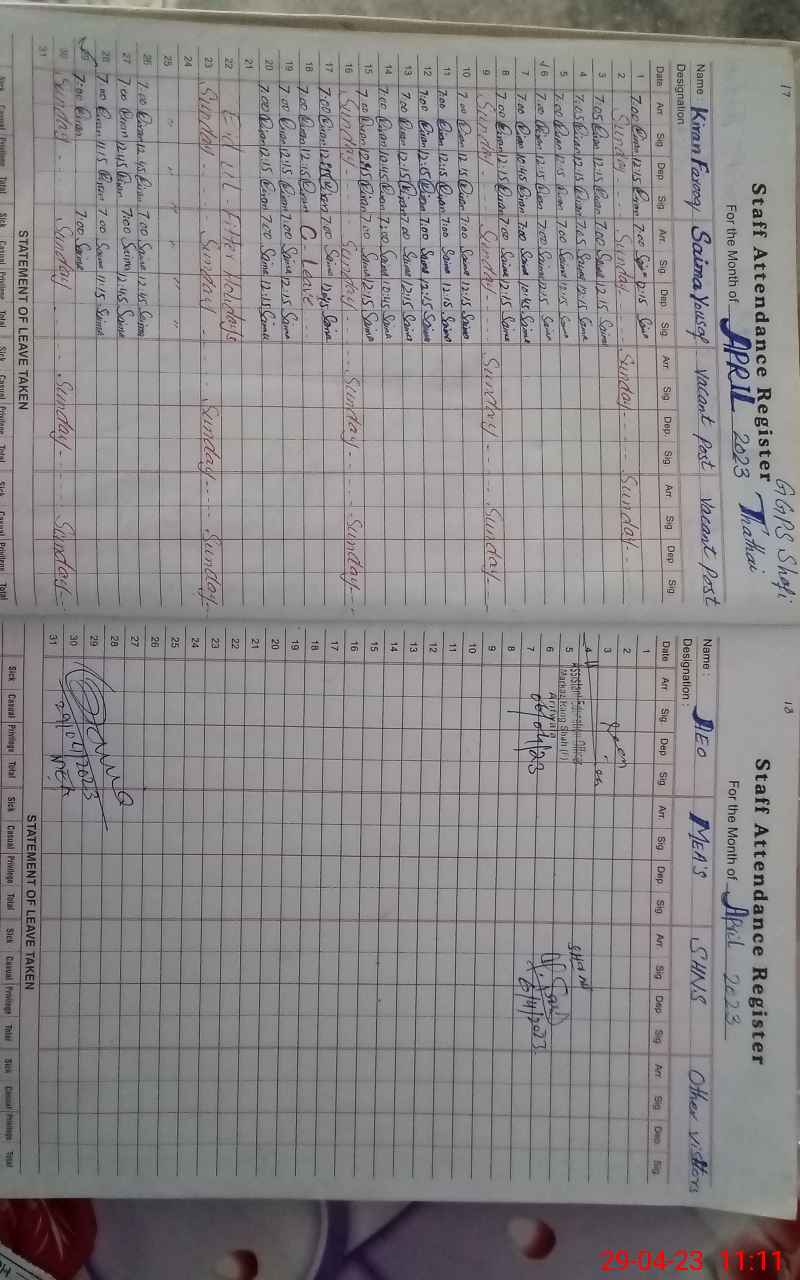 17
GGPS Shafi
Staff Attendance Register Thathai
For the Month of APRIL 2023
Name Kiran Farooq Saima Yousaf Vacant Post Vacant Post
Designation
Date Arr. Sig. Dep. Sig. Arr. Sig. Dep. Sig. Arr. Sig. Dep. Sig. Arr. Sig. Dep. Sig.
1 7.00 Kiran 12:15 Kiran 7.00 Saima 12:15 Saima
2 Sunday Sunday Sunday Sunday
3 7.05 Kiran 12:15 Kiran 7.00 Saima 12:15 Saima
4 7.05 Kiran 12:15 Kiran 7.05 Saima 12:15 Saima
5 7.00 Kiran 12:15 Kiran 7.00 Saima 12:15 Saima
6 7.00 Kiran 12:15 Kiran 7.00 Saima 12:15 Saima
7 7.00 Kiran 10:45 Kiran 7.00 Saima 10:45 Saima
8 7.00 Kiran 12:15 Kiran 7.00 Saima 12:15 Saima
9 Sunday Sunday Sunday Sunday
10 7.00 Kiran 12:15 Kiran 7:00 Saima 12:15 Saima
11 7:00 Kiran 12:15 Kiran 7:00 Saima 12:15 Saima
12 7:00 Kiran 12:15 Kiran 7.00 Saima 12:15 Saima
13 7.00 Kiran 12:15 Kiran 7.00 Saima 12:15 Saima
14 7.00 Kiran 10:45 Kiran 7:00 Saima 10:45 Saima
15 7.00 Kiran 12:15 Kiran 7.00 Saima 12:15 Saima
16 Sunday Sunday Sunday Sunday
17 7.00 Kiran Kiran 7.00 Saima Saima
18 7.00 Kiran 12:15 Kiran C- Leave
19 7.00 Kiran 12:15 Kiran 7.00 Saima 12:15 Saima
20 7.00 Kiran 12:15 Kiran 7.00 Saima 12:15 Saima
21
22 Eid ul-Fitter Holidays
23 Sunday Sunday Sunday Sunday
24
25 " " " " " "
26 7.00 Kiran 12:45 Kiran 7.00 Saima 12:45 Saima
27 7.00 Kiran 12:45 Kiran 7:00 Saima 12:45 Saima
28 7.00 Kiran 11:15 Kiran 7.00 Saima 11:15 Saima
29 7:00 Kiran 7.00 Saima
30 Sunday Sunday Sunday Sunday
31
STATEMENT OF LEAVE TAKEN
Sick Casual Privilege Total Sick Casual Privilege Total Sick Casual Privilege Total Sick Casual Privilege Total
18
Staff Attendance Register
For the Month of April 2023
Name : AEO MEA'S SHNS Other Visitors
Designation :
Date Arr. Sig. Dep. Sig. Arr. Sig. Dep. Sig. Arr. Sig. Dep. Sig. Arr. Sig. Dep. Sig.
1
2
3
4
5 Assistant Education Officer
Markaz Rang Shah (F)
6 Arifwala
7 06/04/23 6/4/2023
8
9
10
11
12
13
14
15
16
17
18
19
20
21
22
23
24
25
26
27
28
29
30 29/04/2023
31 MEA
STATEMENT OF LEAVE TAKEN
Sick Casual Privilege Total Sick Casual Privilege Total Sick Casual Privilege Total Sick Casual Privilege Total
29-04-23 11:11